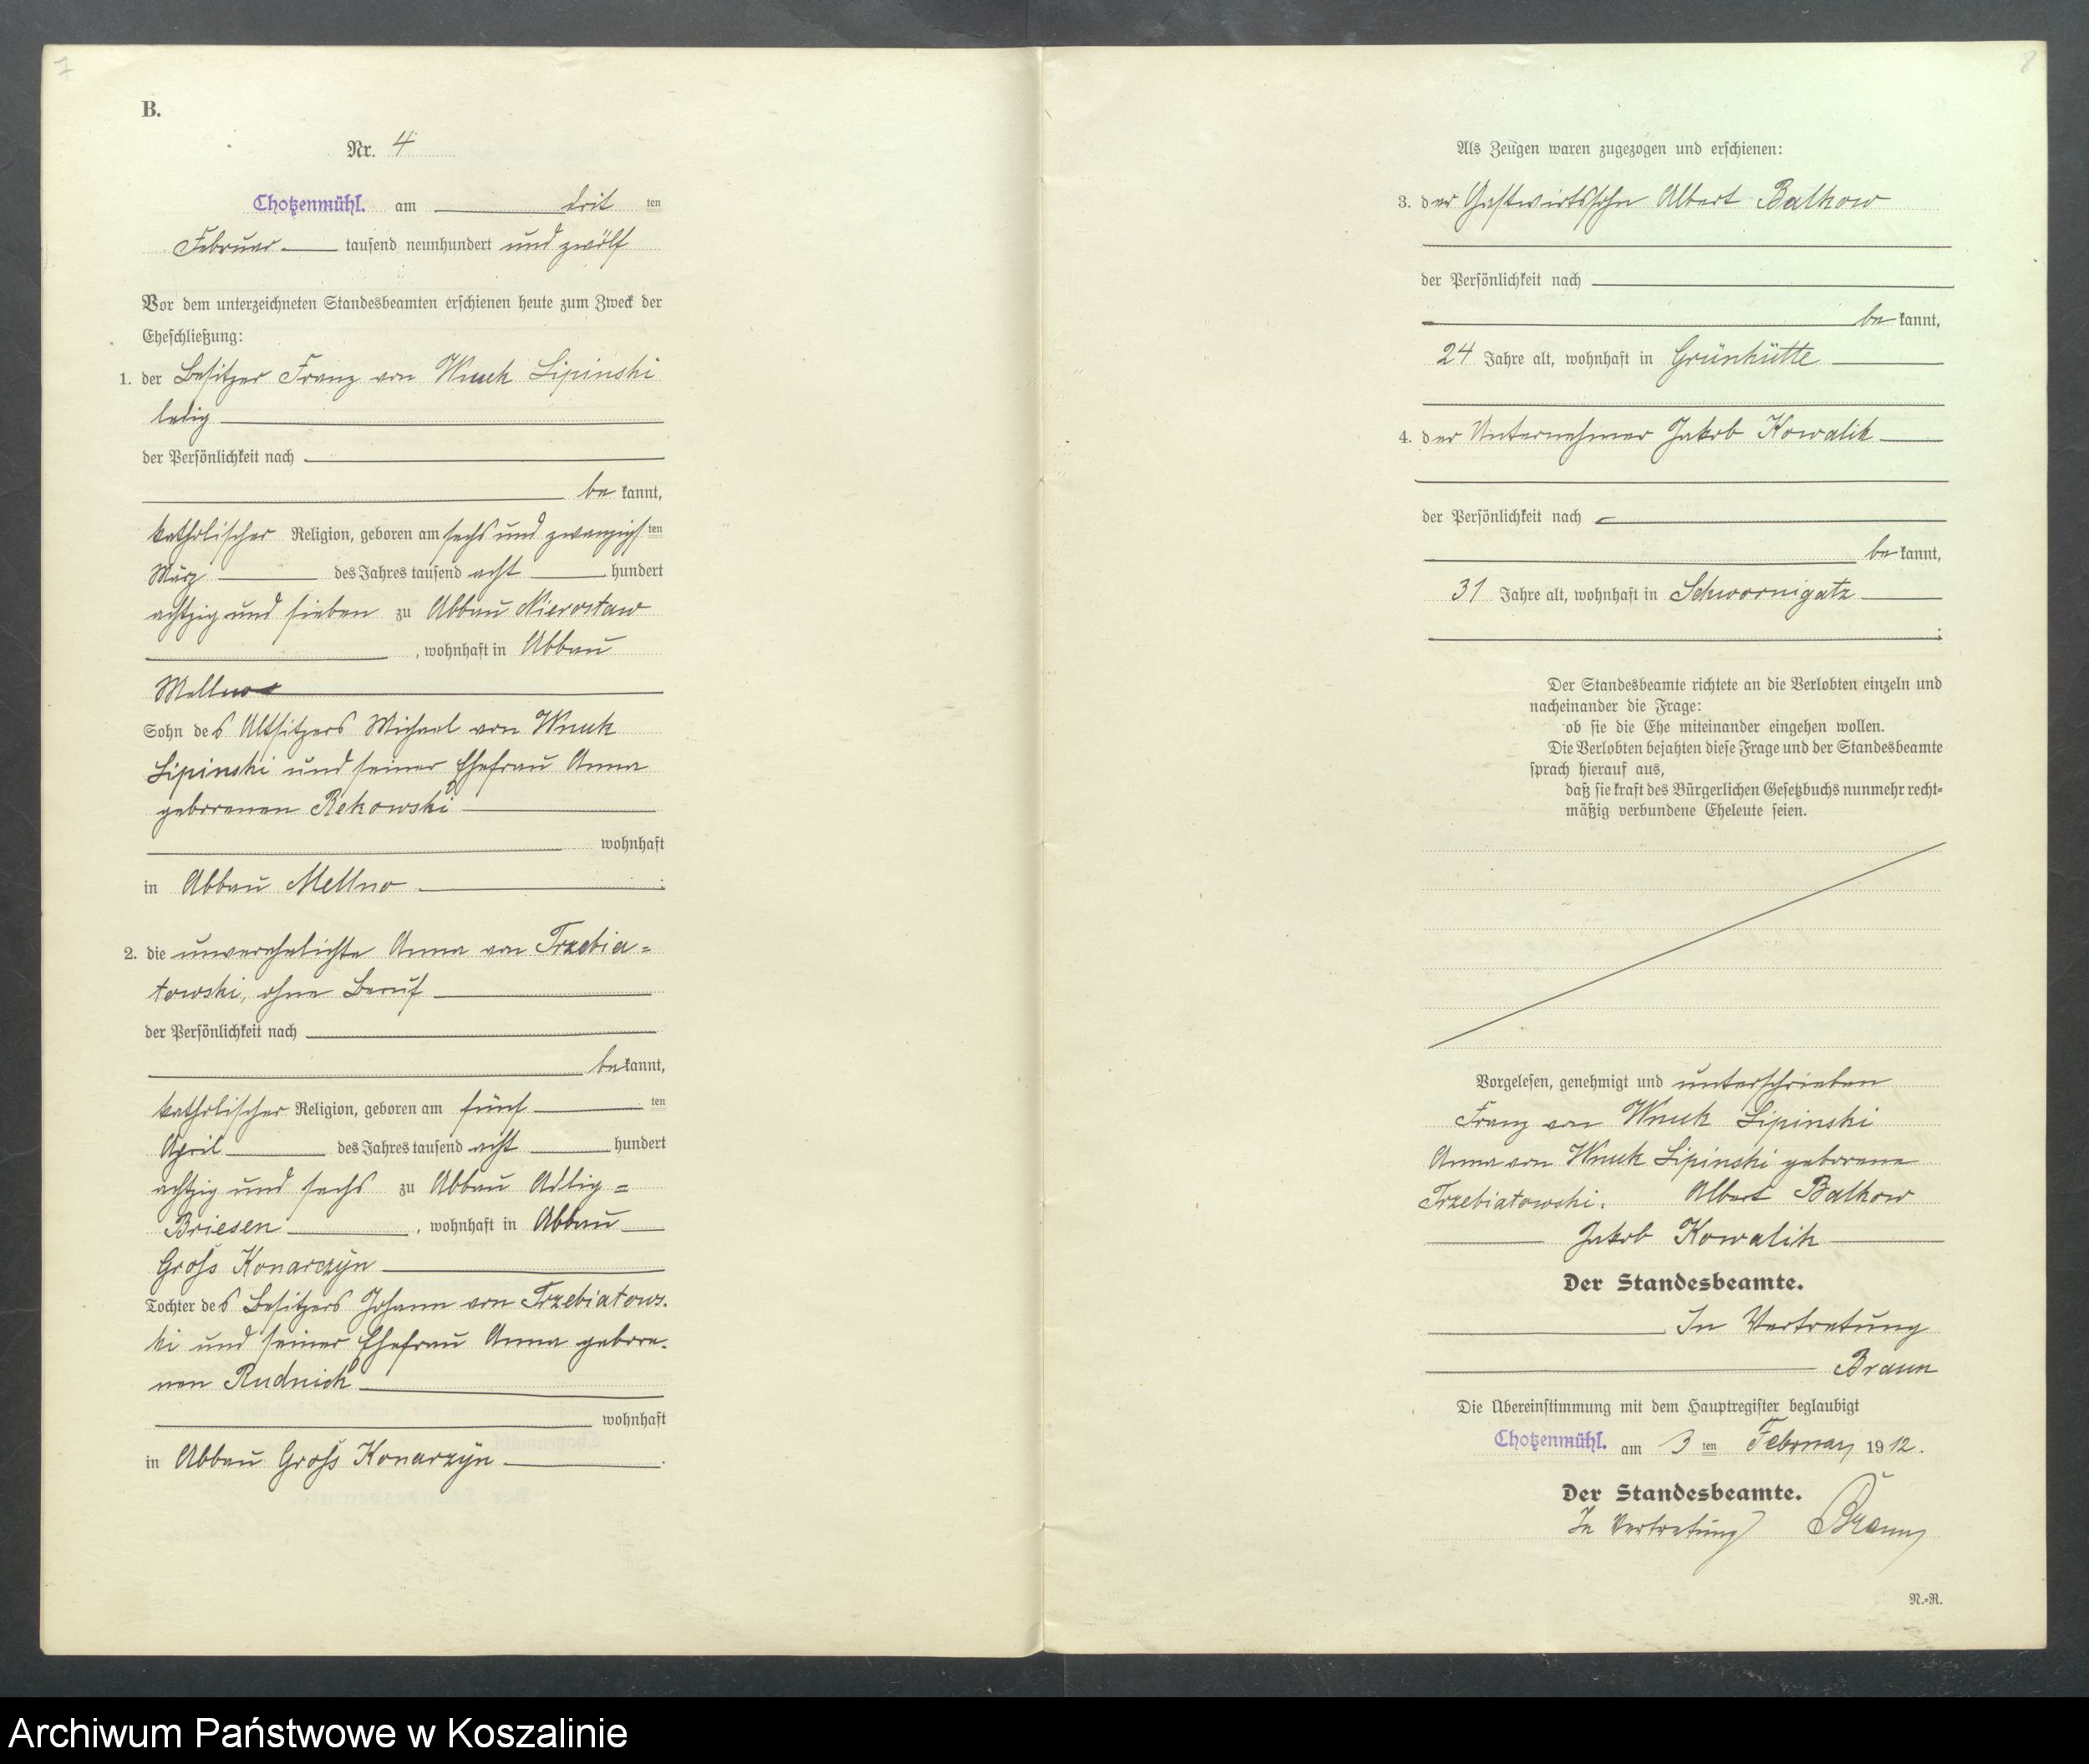 7
B.
Nr. 4
Chotzenmühl. am drit ten
Februar tausend neunhundert und zwölf
Vor dem unterzeichneten Standesbeamten erschienen heute zum Zweck der
Eheschließung:
1. der Besitzer Franz von Wnuk Lipinski
ledig
der Persönlichkeit nach
be kannt,
katholischer Religion, geboren am sechs und zwanzigs ten
März des Jahres tausend acht hundert
achtzig und sieben zu Abbau Nierostaw
, wohnhaft in Abbau
Mellno
Sohn des Altsitzers Michael von Wnuk
Lipinski und seiner Ehefrau Anna
geborenen Rekowski
wohnhaft
in Abbau Mellno .
2. die unverehelichte Anna von Trzebia=
towski, ohne Beruf
der Persönlichkeit nach
be kannt,
katholischer Religion, geboren am fünf ten
April des Jahres tausend acht hundert
achtzig und sechs zu Abbau Adlig=
Briesen , wohnhaft in Abbau
Groß Konarczyn
Tochter des Besitzers Johann von Trzebiatows-
ki und seiner Ehefrau Anna gebore-
nen Rudnick
wohnhaft
in Abbau Groß Konarzyn .
8
Als Zeugen waren zugezogen und erschienen:
3. der Gastwirtssohn Albert Balkow
der Persönlichkeit nach
be kannt,
24 Jahre alt, wohnhaft in Grünhütte
4. der Unternehmer Jakob Kowalik
der Persönlichkeit nach
be kannt,
31 Jahre alt, wohnhaft in Schwornigatz
.
Der Standesbeamte richtete an die Verlobten einzeln und
nacheinander die Frage:
ob sie die Ehe miteinander eingehen wollen.
Die Verlobten bejahten diese Frage und der Standesbeamte
sprach hierauf aus,
daß sie kraft des Bürgerlichen Gesetzbuchs nunmehr recht=
mäßig verbundene Eheleute seien.
Vorgelesen, genehmigt und unterschrieben
Franz von Wnuk Lipinski
Anna von Wnuk Lipinski geborene
Trzebiatowski. Albert Balkow
Jakob Kowalik
Der Standesbeamte.
In Vertretung
Braun
Die Übereinstimmung mit dem Hauptregister beglaubigt
Chotzenmühl. am 3 ten Februar 1912.
Der Standesbeamte.
In Vertretung Braun
N.=R.
Archiwum Państwowe w Koszalinie